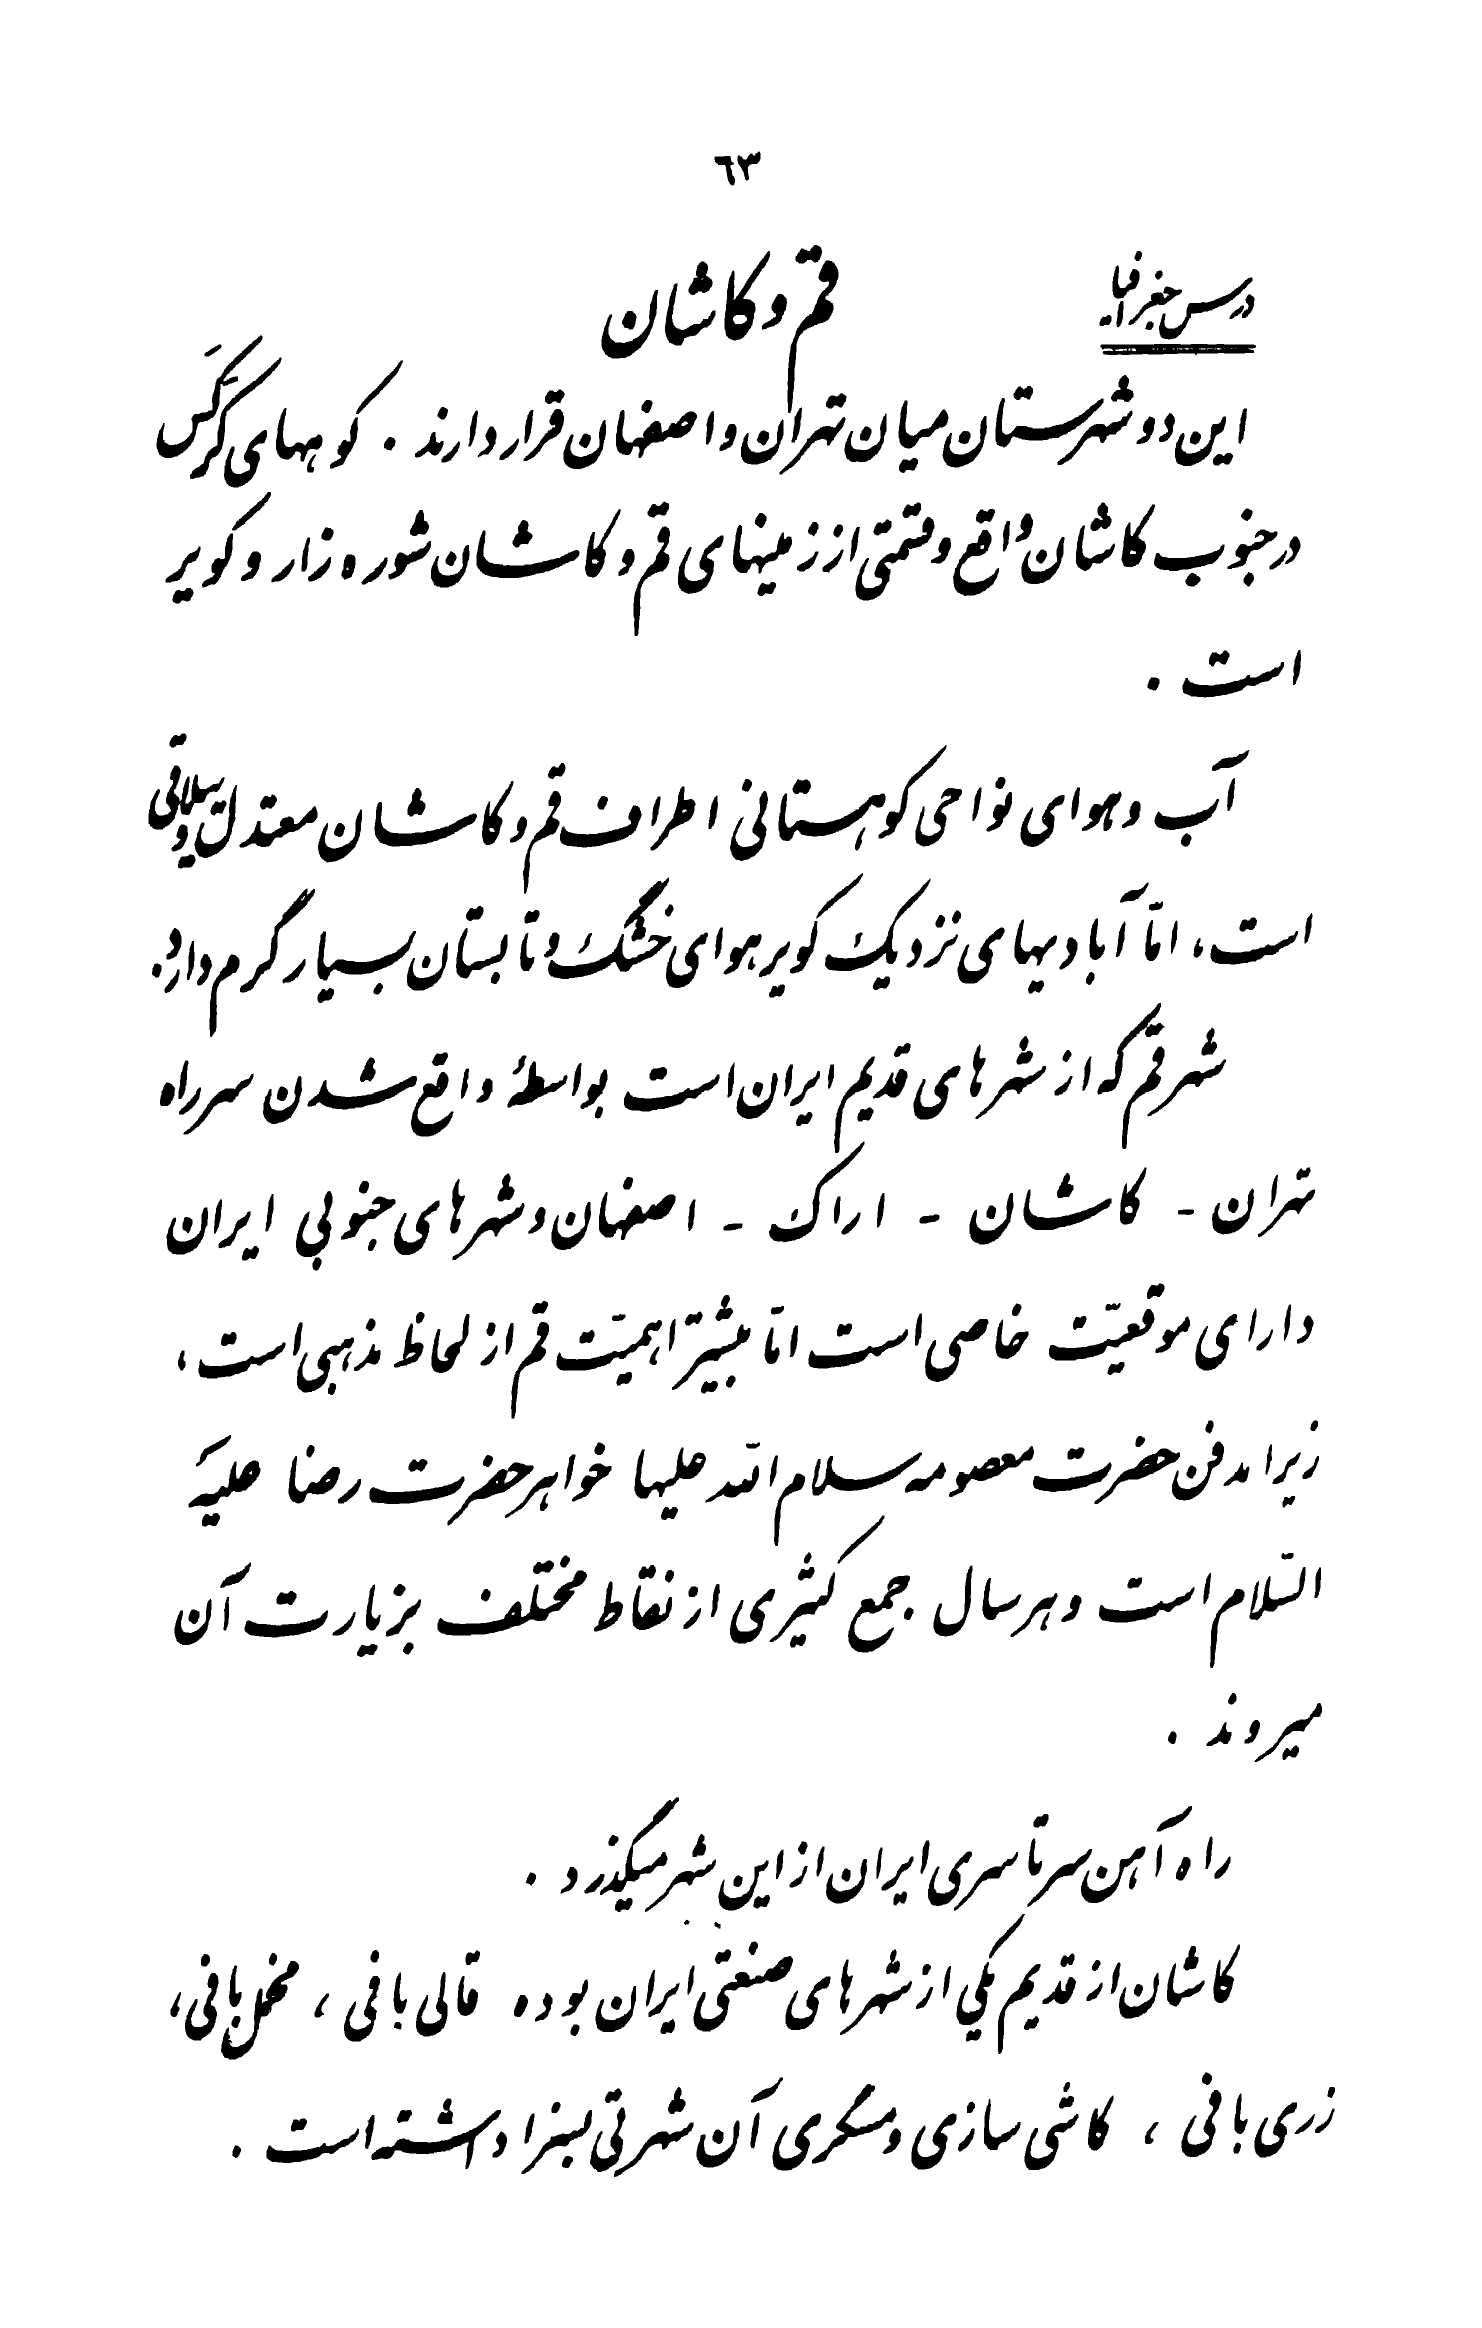 ٦٣
درس جغرافیا
قم و کاشان
این دو شهرستان میان تهران و اصفهان قرار دارند . کوههای کَرکَس
در جنوب کاشان واقع و قسمتی از زمینهای قم و کاشان شوره زار و کویر
است .
آب و هوای نواحی کوهستانی اطراف قم و کاشان معتدل و ییلاقی
است، امّا آبادیهای نزدیک کویر هوای خشک و تابستان بسیار گرم دارد.
شهر قم که از شهرهای قدیم ایران است بواسطهٔ واقع شدن سر راه
تهران - کاشان - اراک - اصفهان و شهرهای جنوبی ایران
دارای موقعیّت خاصی است امّا بیشتر اهمیّت قم از لحاظ مذهبی است،
زیرا مدفن حضرت معصومه سلام الله علیها خواهر حضرت رضا علیه
السّلام است و هر سال جمع کثیری از نقاط مختلف بزیارت آن
میروند .
راه آهن سرتاسری ایران از این شهر میگذرد .
کاشان از قدیم یکی از شهرهای صنعتی ایران بوده قالی بافی ، مخمل بافی،
زری بافی ، کاشی سازی و مسگری آن شهرتی بسزا داشته است .